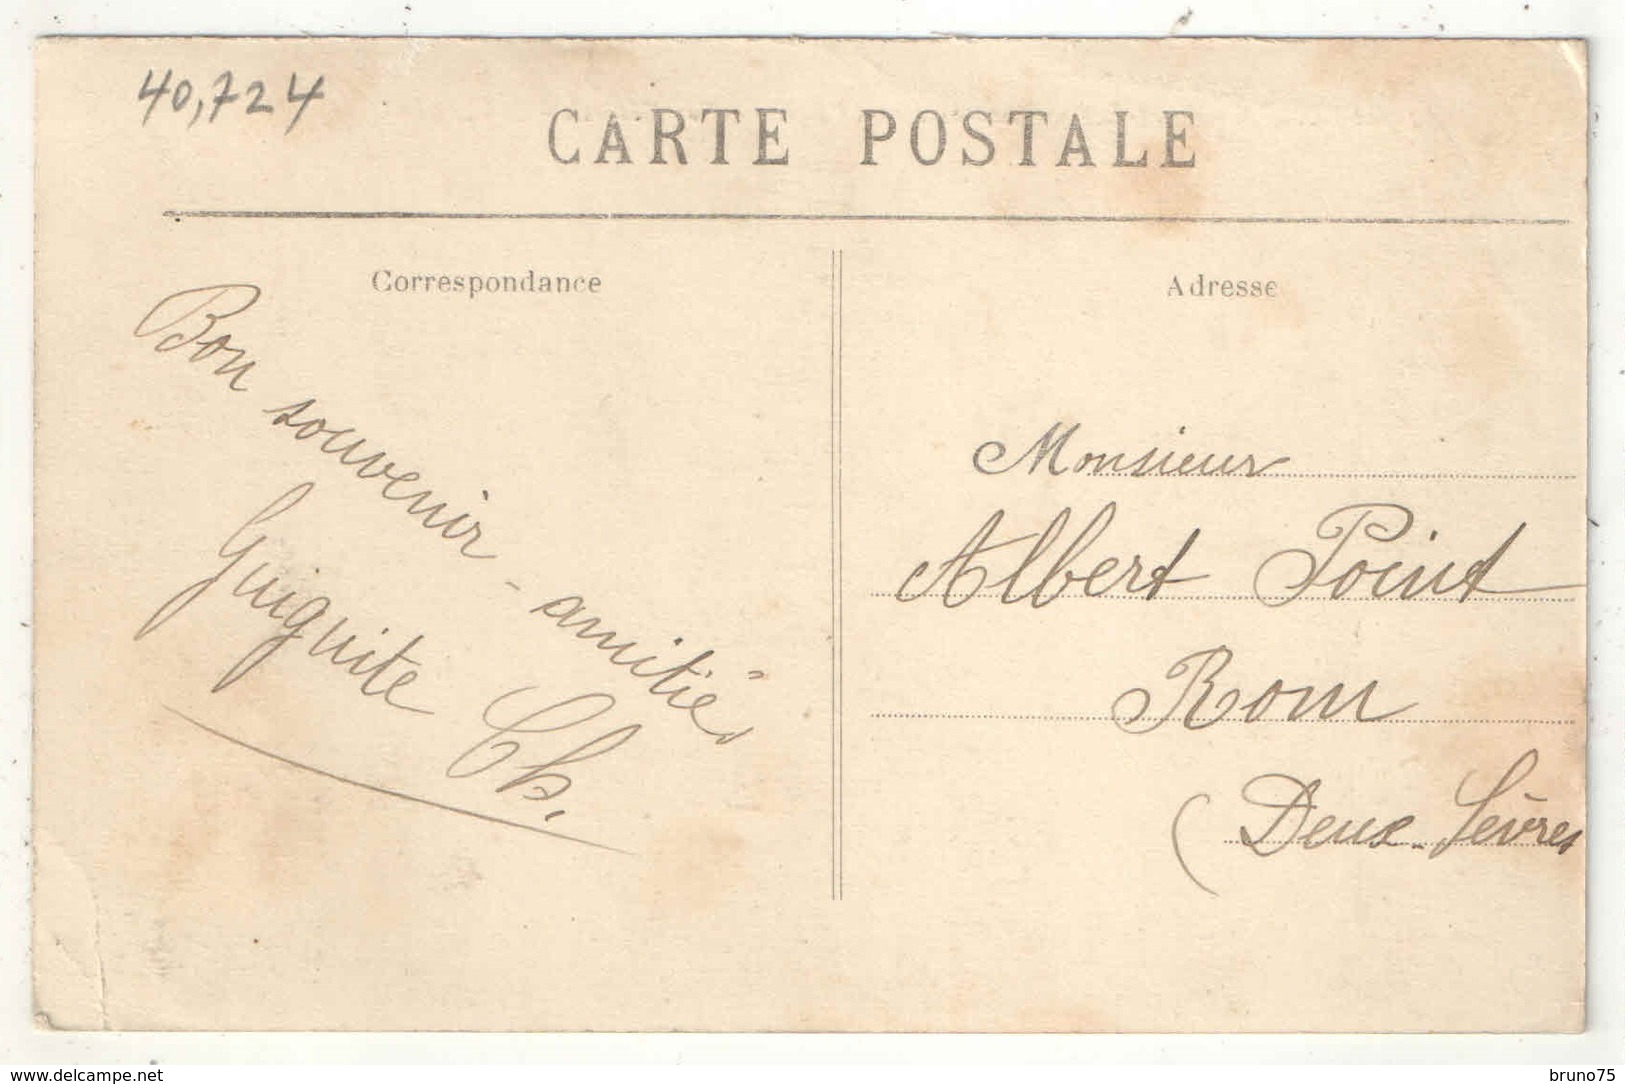 40,724
CARTE POSTALE
Correspondance
Bon souvenir - amitiés
Guiguite Ch.
Adresse
Monsieur
Albert Point
Rom
(Deux-Sèvres
www.delcampe.net
bruno75